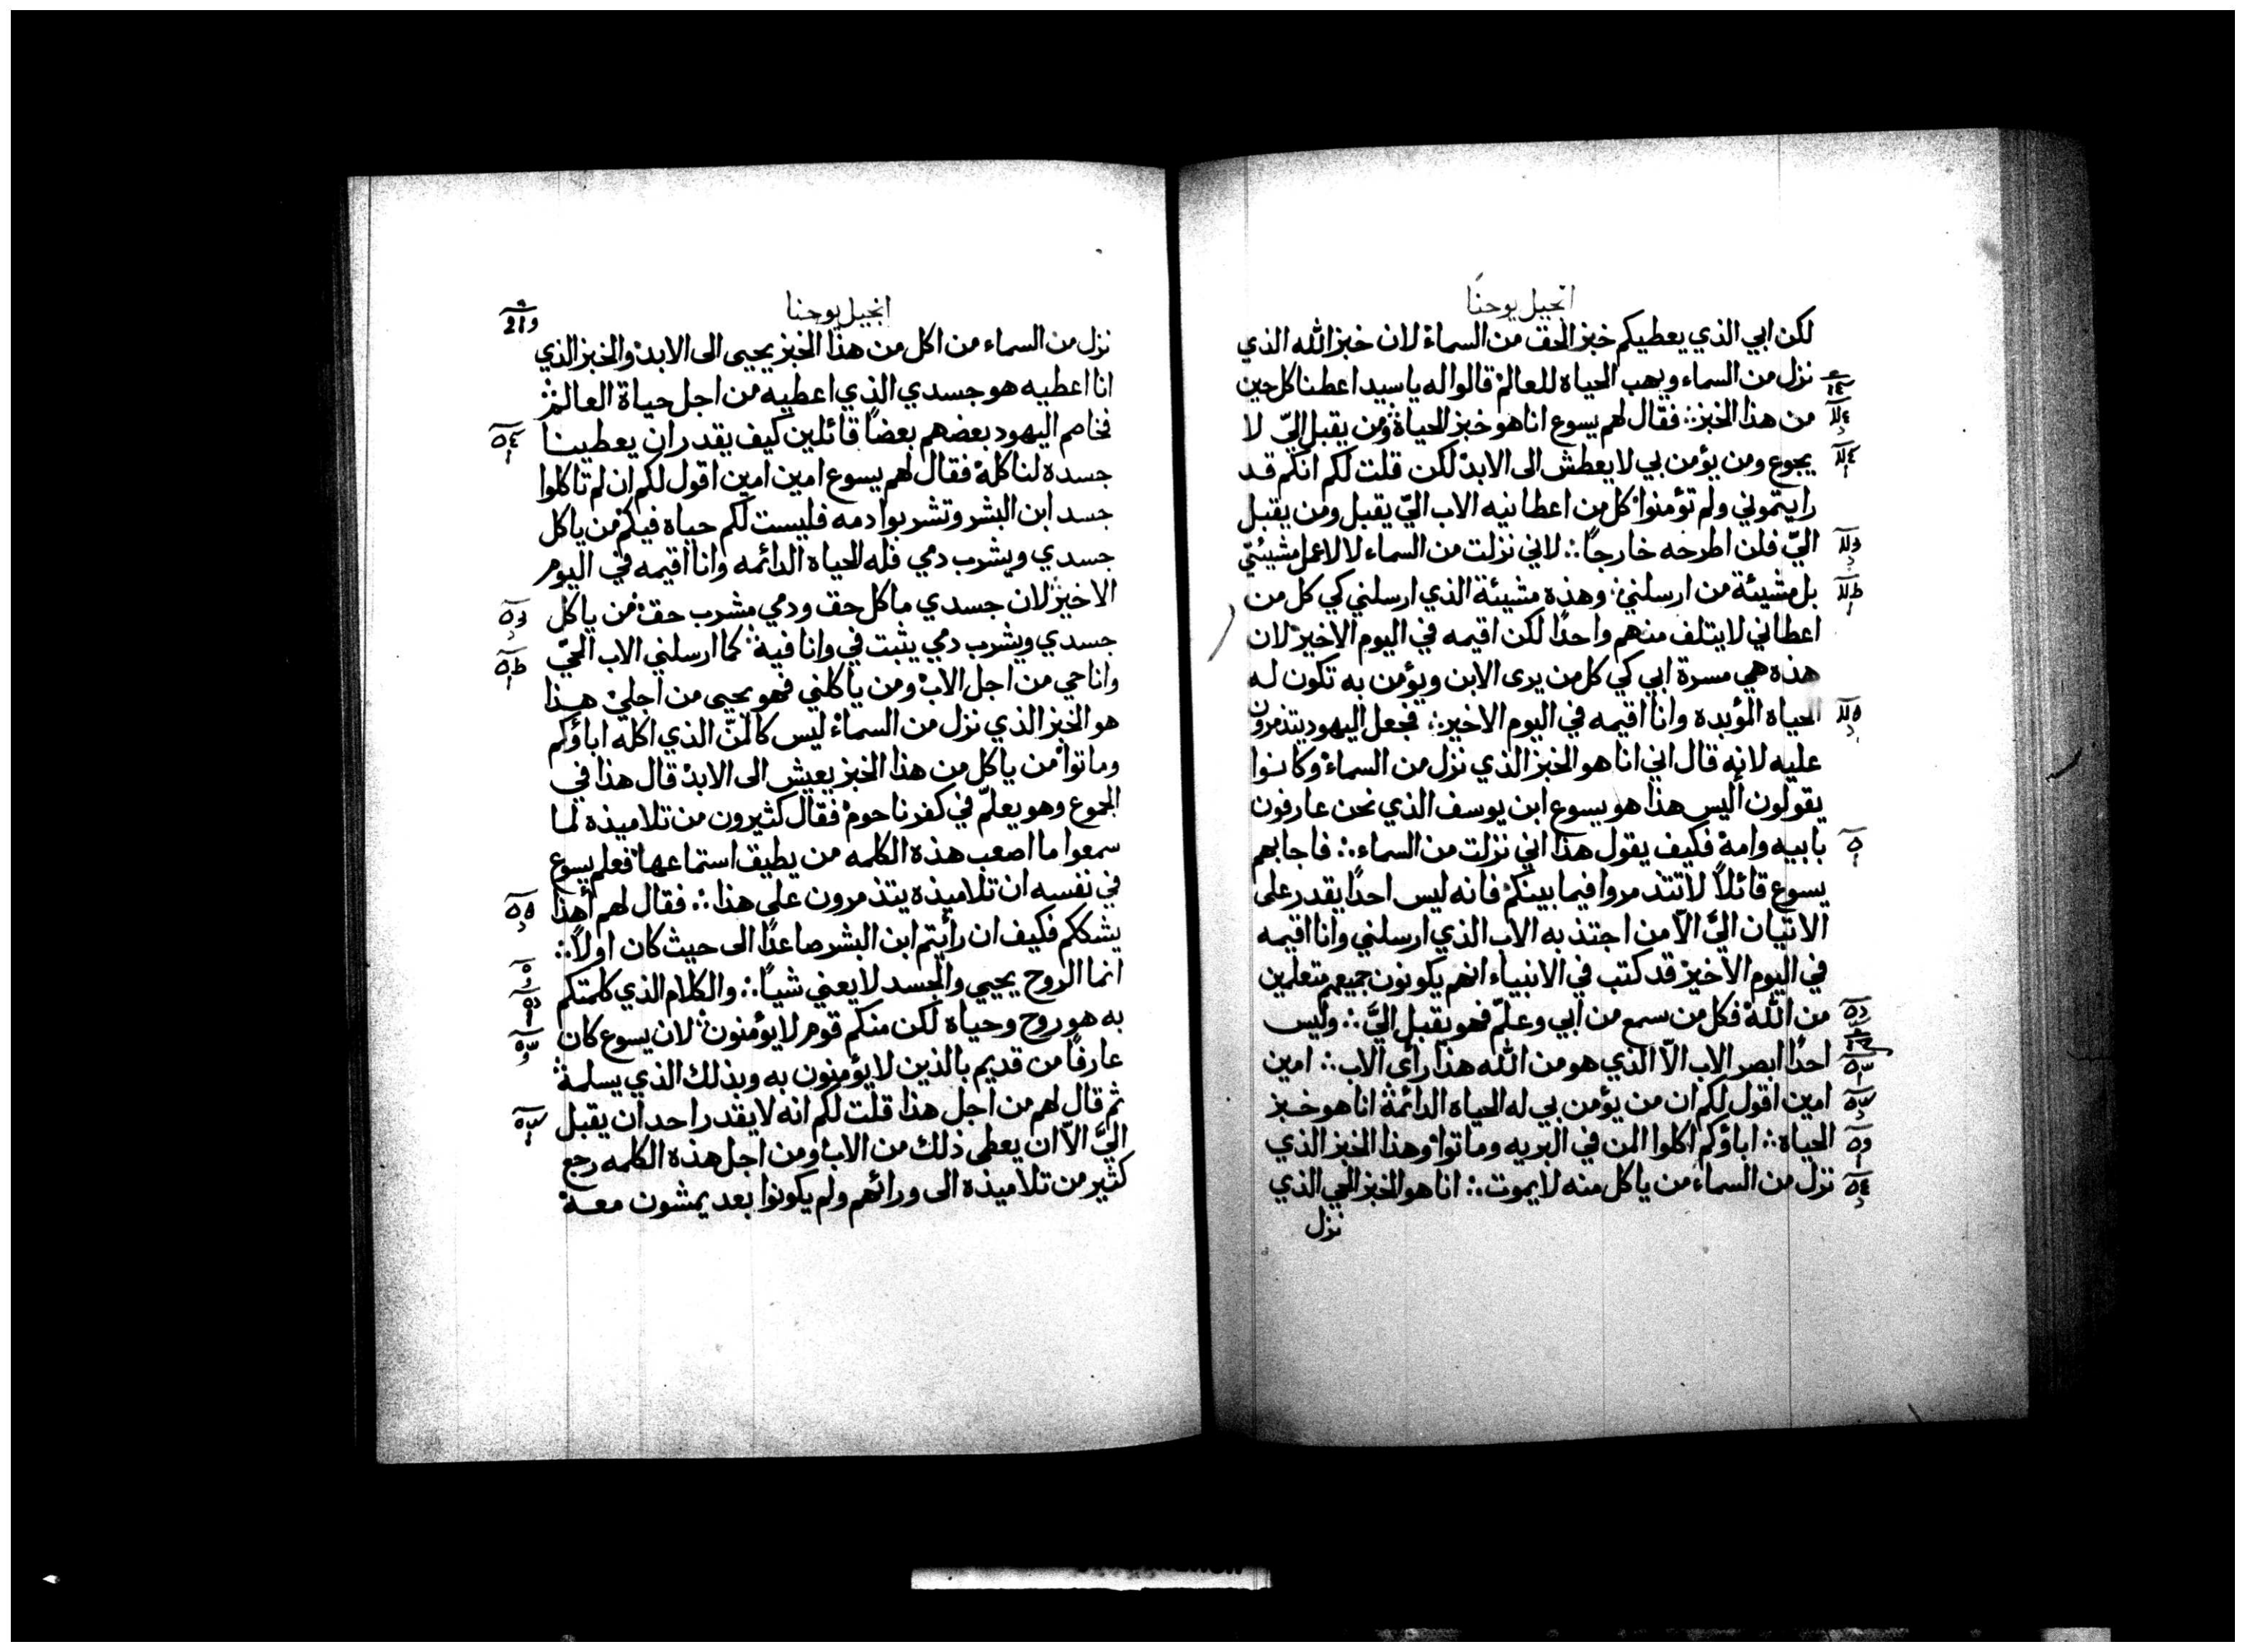 انجيل يوحنا
لكن ابي الذي يعطيكم خبز الحق من السماء لان خبز الله الذي
نزل من السماء ويهب الحياه للعالم قالوا له يا سيد اعطنا كل حين
من هذا الخبز فقال لهم يسوع انا هو خبز الحياة ومن يقبل اليّ لا
يجوع ومن يؤمن بي لا يعطش الى الابد لكن قلت لكم انكم قد
رايتموني ولم تؤمنوا كل من اعطانيه الاب اليّ يقبل ومن يقبل
اليّ فلن اطرحه خارجاً لاني نزلت من السماء لا لاعمل مشيئتي
بل مشيئة من ارسلني وهذه مشيئة الذي ارسلني كي كل من
اعطاني لا يتلف منهم واحدًا لكن اقيمه في اليوم الاخير لان
هذه هي مسرة ابي كي كل من يرى الابن ويؤمن به تكون له
الحياه المؤبده وانا اقيمه في اليوم الاخير فجعل اليهود يتذمرون
عليه لانه قال اني انا هو الخبز الذي نزل من السماء وكانوا
يقولون أليس هذا هو يسوع ابن يوسف الذي نحن عارفون
بابيه وامه فكيف يقول هذا اني نزلت من السماء فاجابهم
يسوع قائلاً لا تتذمروا فيما بينكم فانه ليس احدًا يقدر على
الاتيان اليّ الاّ من اجتذبه الاب الذي ارسلني وانا اقيمه
في اليوم الاخير قد كتب في الانبياء انهم يكونون جميعهم متعلمين
من الله فكل من سمع من ابي وعلم فهو يقبل اليّ وليس
احدًا ابصر الاب الاّ الذي هو من الله هذا رأى الاب امين
امين اقول لكم ان من يؤمن بي له الحياه الدائمة انا هو خبز
الحياه اباؤكم اكلوا المن في البريه وماتوا وهذا الخبز الذي
نزل من السماء من ياكل منه لا يموت انا هو الخبز الحي الذي
نزل
انجيل يوحنا
نزل من السماء من اكل من هذا الخبز يحيى الى الابد والخبز الذي
انا اعطيه هو جسدي الذي اعطيه من اجل حياة العالم
فخاصم اليهود بعضهم بعضاً قائلين كيف يقدر ان يعطينا
جسده لناكله فقال لهم يسوع امين امين اقول لكم ان لم تاكلوا
جسد ابن البشر وتشربوا دمه فليست لكم حياه فيكم من ياكل
جسدي ويشرب دمي فله الحياه الدائمه وانا اقيمه في اليوم
الاخير لان جسدي ماكل حق ودمي مشرب حق من ياكل
جسدي ويشرب دمي يثبت في وانا فيه كما ارسلني الاب الحيّ
وانا حي من اجل الاب ومن ياكلني فهو يحيى من اجلي هذا
هو الخبز الذي نزل من السماء ليس كالمنّ الذي اكله اباؤكم
وماتوا من ياكل من هذا الخبز يعيش الى الابد قال هذا في
الجموع وهو يعلّم في كفرناحوم فقال كثيرون من تلاميذه لما
سمعوا ما اصعب هذه الكلمه من يطيق استماعها فعلم يسوع
في نفسه ان تلاميذه يتذمرون على هذا فقال لهم أهذا
يشككم فكيف ان رأيتم ابن البشر صاعدًا الى حيث كان اولاً
انما الروح يحيي والجسد لا يعني شياً والكلام الذي كلمتكم
به هو روح وحياه لكن منكم قوم لا يؤمنون لان يسوع كان
عارفاً من قديم بالذين لا يؤمنون به وبذلك الذي يسلمه
ثم قال لهم من اجل هذا قلت لكم انه لا يقدر احد ان يقبل
اليّ الاّ ان يعطى ذلك من الاب ومن اجل هذه الكلمه رجع
كثير من تلاميذه الى ورائهم ولم يكونوا بعد يمشون معه